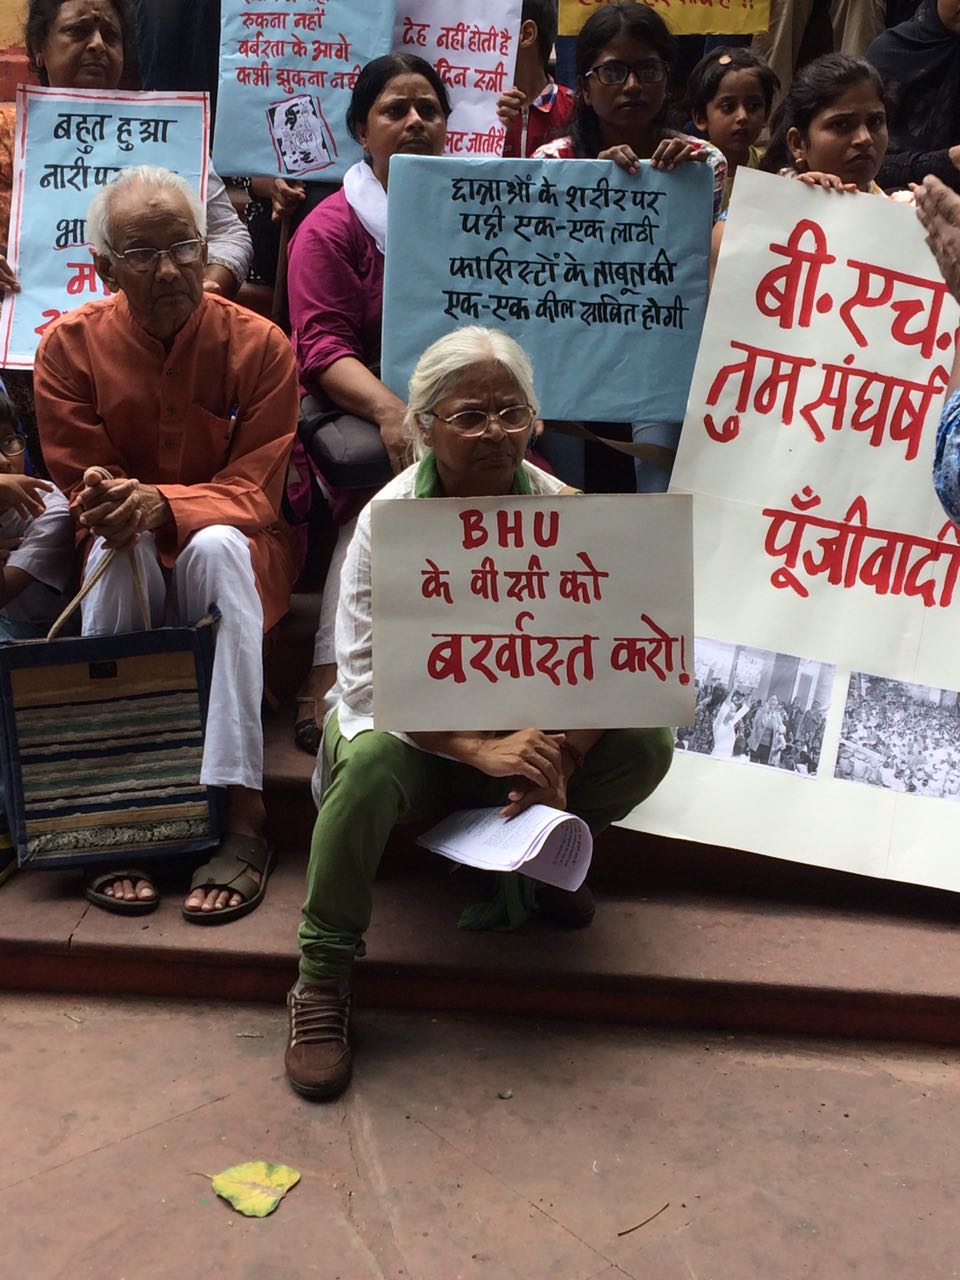 रुकना नहीं
बर्बरता के आगे
कभी झुकना नहीं
देह नहीं होती है
दिन स्त्री
जाती है
बहुत हुआ
नारी
छात्राओं के शरीर पर
पड़ी एक-एक लाठी
फासिस्टों के ताबूत की
एक-एक कील साबित होगी
बी. एच.
तुम संघर्ष
पूँजीवादी
BHU
के वी सी को
बर्खास्त करो!